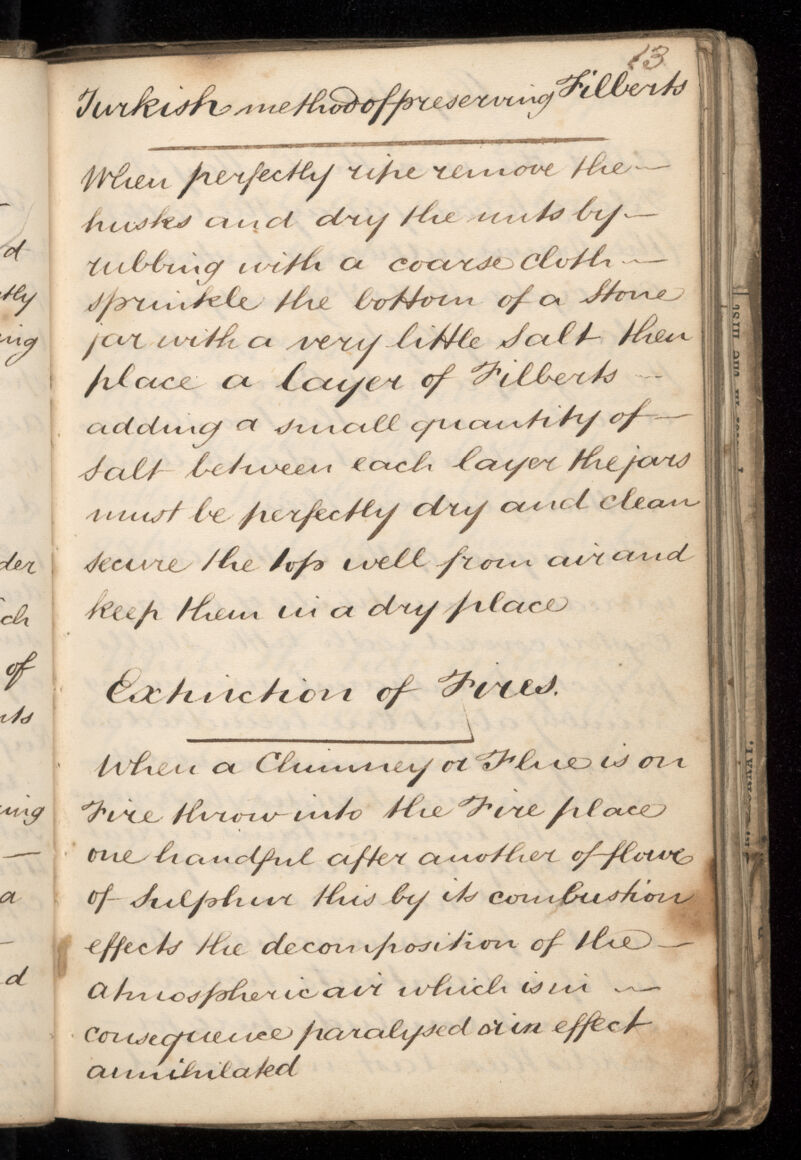 13
Turkish method of preserving Filberts
When perfectly ripe remove the
husks and dry the nuts by
rubbing with a coarse cloth
sprinkle the bottom of a Stone
jar with a very little Salt then
place a layer of Filberts
adding a small quantity of
Salt between each layer the jars
must be perfectly dry and clean
secure the top well from air and
keep them in a dry place
Extinction of Fires.
When a Chimney or Flue is on
Fire throw into the Fire place
one handful after another of flowe
of Sulphur this by its combustion
effects the decomposition of the
Atmospheric air which is in
consequence paralysed or in effect
annihilated
d
tly
ing
der
ch
of
nts
ing
a
d
in the first